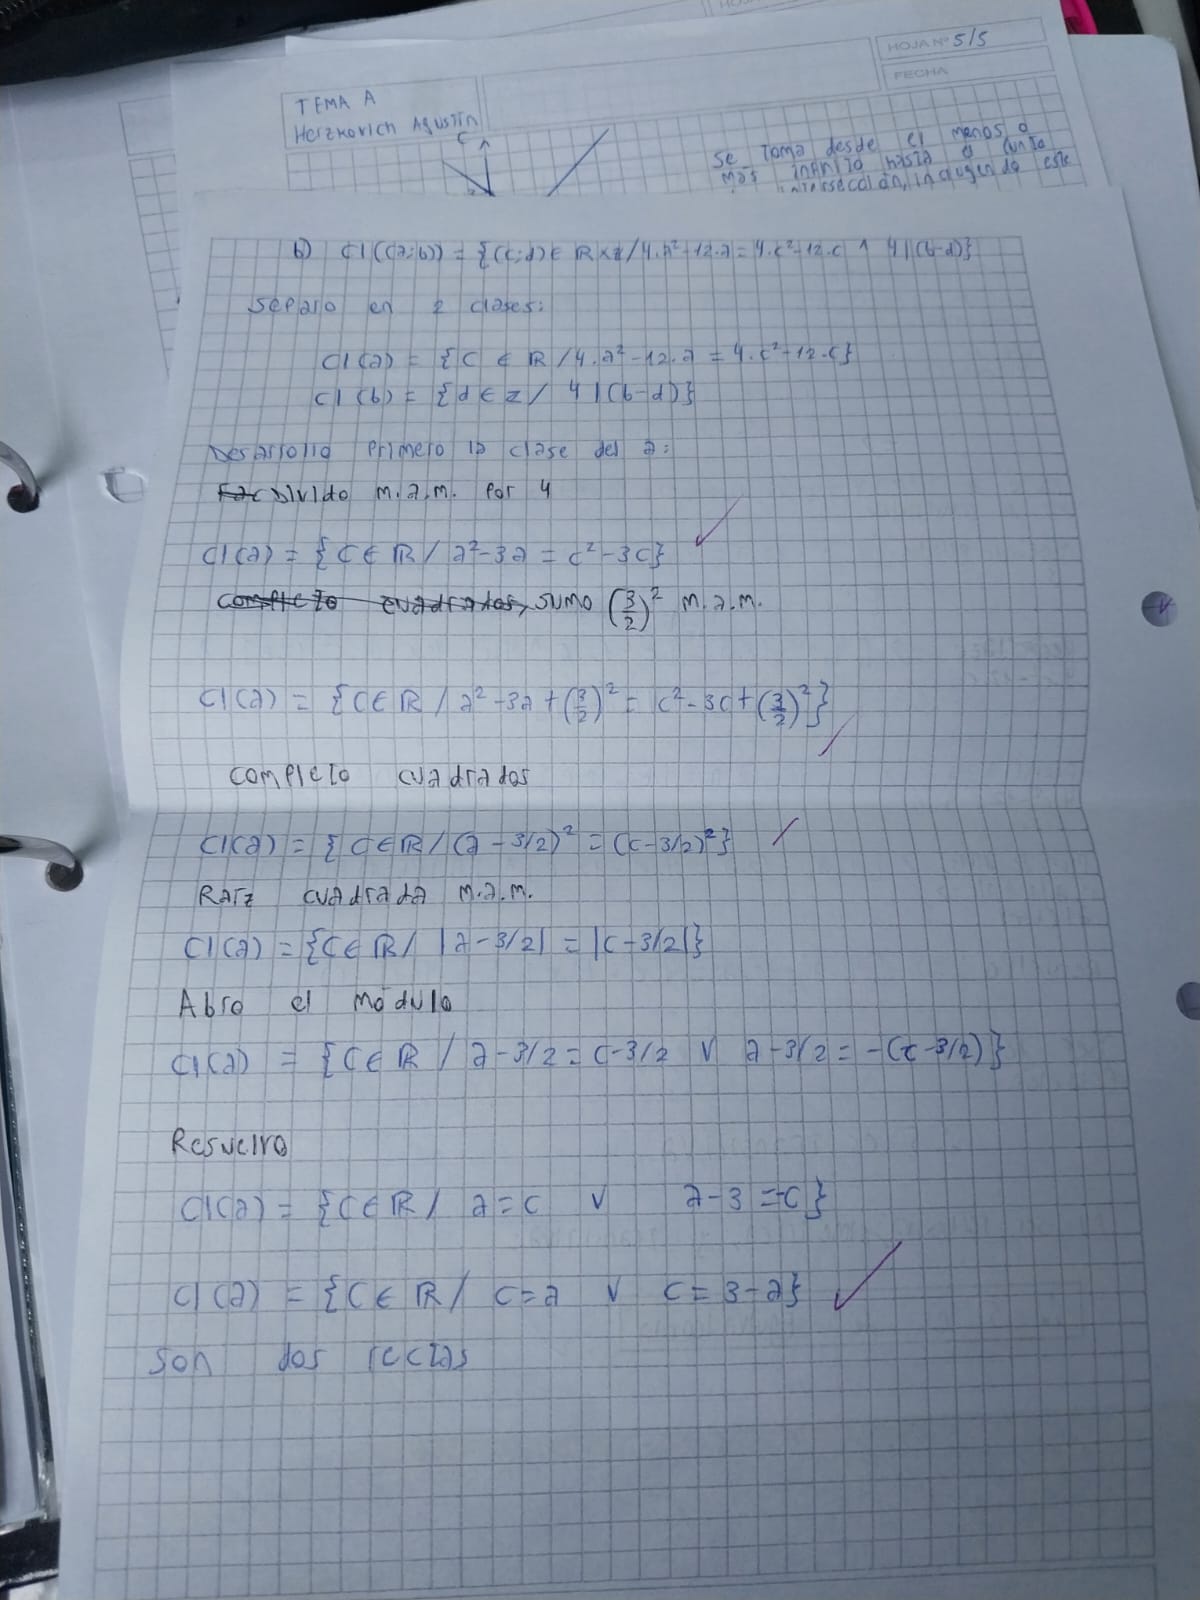 HOJA Nº 5/5
FECHA
TEMA A
Herzkovich Agustín
C
Se toma desde el menos o
mas infinito hasta el punto
intersección, incluyendo este
b) Cl((a;b)) = {(c;d) ∈ R×Z / 4.a²-12.a = 4.c²-12.c ∧ 4|(b-d)}
Separo en 2 clases:
Cl(a) = {C ∈ R / 4.a²-12.a = 4.c²-12.c}
Cl(b) = {d ∈ Z / 4|(b-d)}
Desarrollo primero la clase del a:
Fac Divido m.a.m. por 4
Cl(a) = {C ∈ R / a²-3a = c²-3c}
completo cuadrados, sumo (3/2)² m.a.m.
Cl(a) = {C ∈ R / a²-3a+(3/2)² = c²-3c+(3/2)²}
completo cuadrados
Cl(a) = {C ∈ R / (a-3/2)² = (c-3/2)²}
Raíz cuadrada m.a.m.
Cl(a) = {C ∈ R / |a-3/2| = |c-3/2|}
Abro el módulo
Cl(a) = {C ∈ R / a-3/2 = c-3/2 ∨ a-3/2 = -(c-3/2)}
Resuelvo
Cl(a) = {C ∈ R / a=c ∨ a-3=-c}
Cl(a) = {C ∈ R / c=a ∨ c=3-a}
Son dos rectas